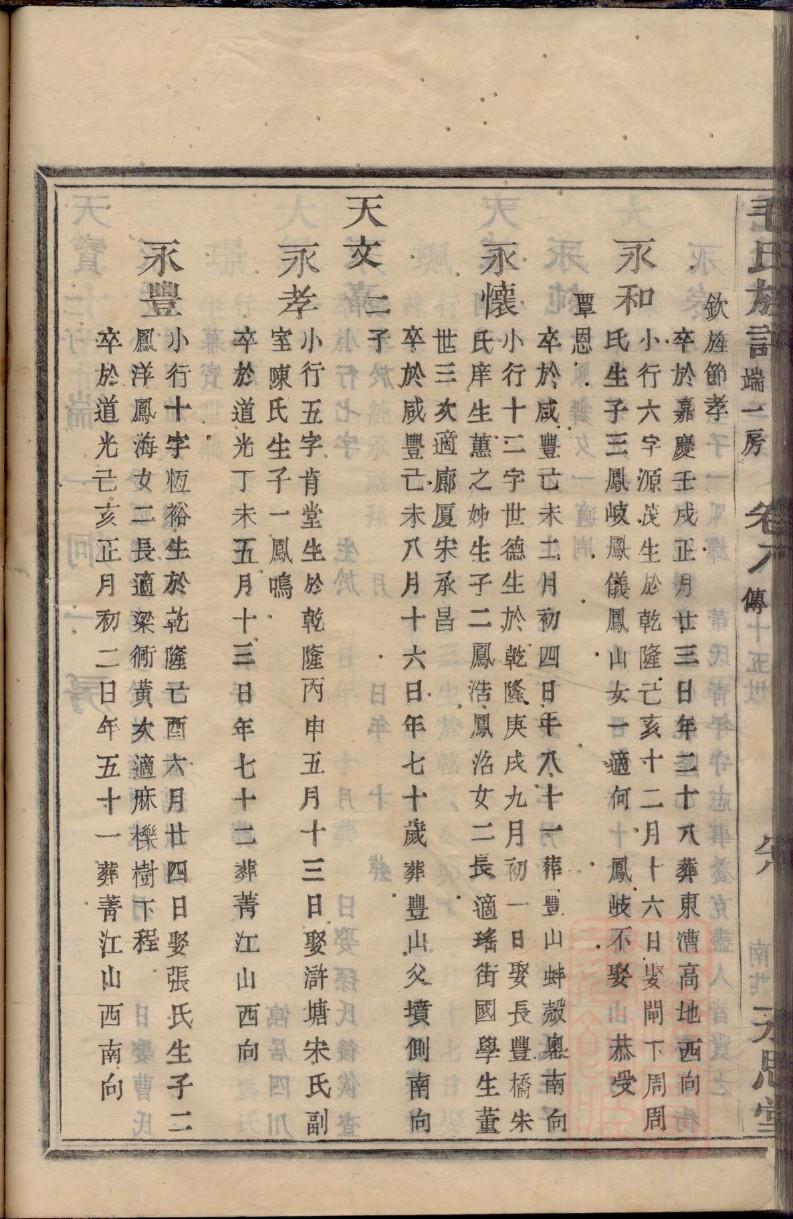 毛氏族譜 端一房 卷八 傳 永思堂
欽旌節孝
卒於嘉慶壬戌正月廿三日年二十八葬東漕高地西向
永和
小行六字源茂生於乾隆己亥十二月十六日娶閘下周周
氏生子三鳳岐鳳儀鳳山女一適何 鳳岐不娶 恭受
覃恩
卒於咸豐己未二月初四日年八十一葬豐山蚌殼奧南向
永懷
小行十二字世德生於乾隆庚戌九月初一日娶長豐橋朱
氏庠生蕙之姊生子二鳳浩鳳治女二長適瑤街國學生董
世三次適廊厦宋承昌
卒於咸豐己未八月十六日年七十歲葬豐山父墳側南向
天文 二子
永孝
小行五字肯堂生於乾隆丙申五月十三日娶滸塘宋氏副
室陳氏生子一鳳鳴
卒於道光丁未五月十三日年七十二葬菁江山西向
永豐
小行十字恆裕生於乾隆己酉六月廿四日娶張氏生子二
鳳洋鳳海女二長適梁衕黃次適麻櫟樹下程
卒於道光己亥正月初二日年五十一葬菁江山西南向